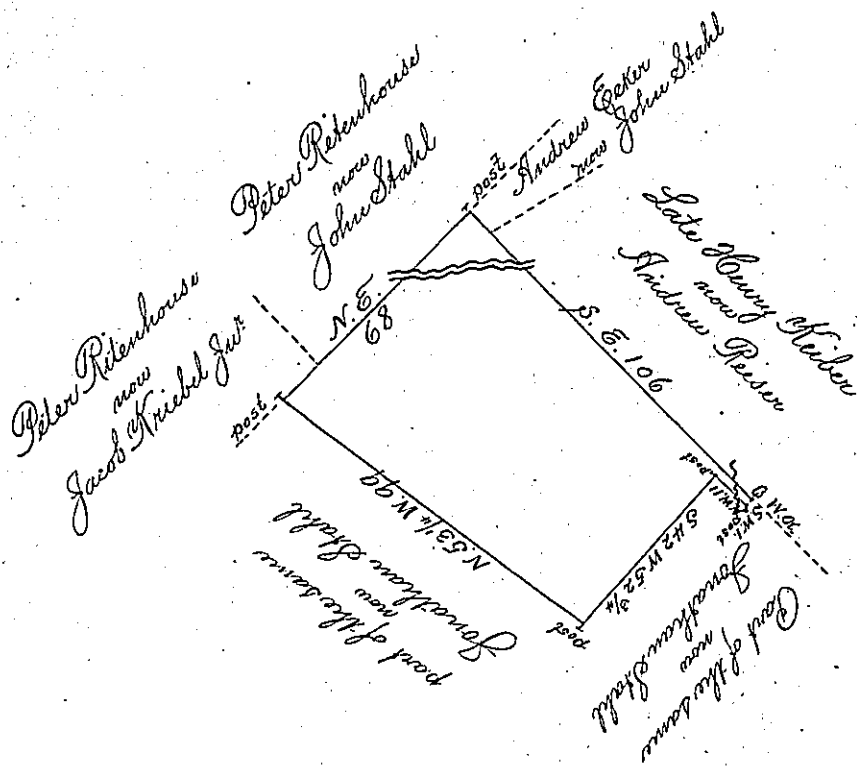 Peter Ritenhouse
now
Jacob Kriebel Jur.
Peter Ritenhouse
now
John Stahl
post
Andrew Ecker
now John Stahl
Late Henry Keiber
now
Andrew Reiser
N. E.
68
S. E. 106
post
N. 53 1/4 W. 99
part of the same
now
Jonathan Stahl
post
S 42 W 52 3/4
post
post
S W 1
Part of the same
now
Jonathan Stahl